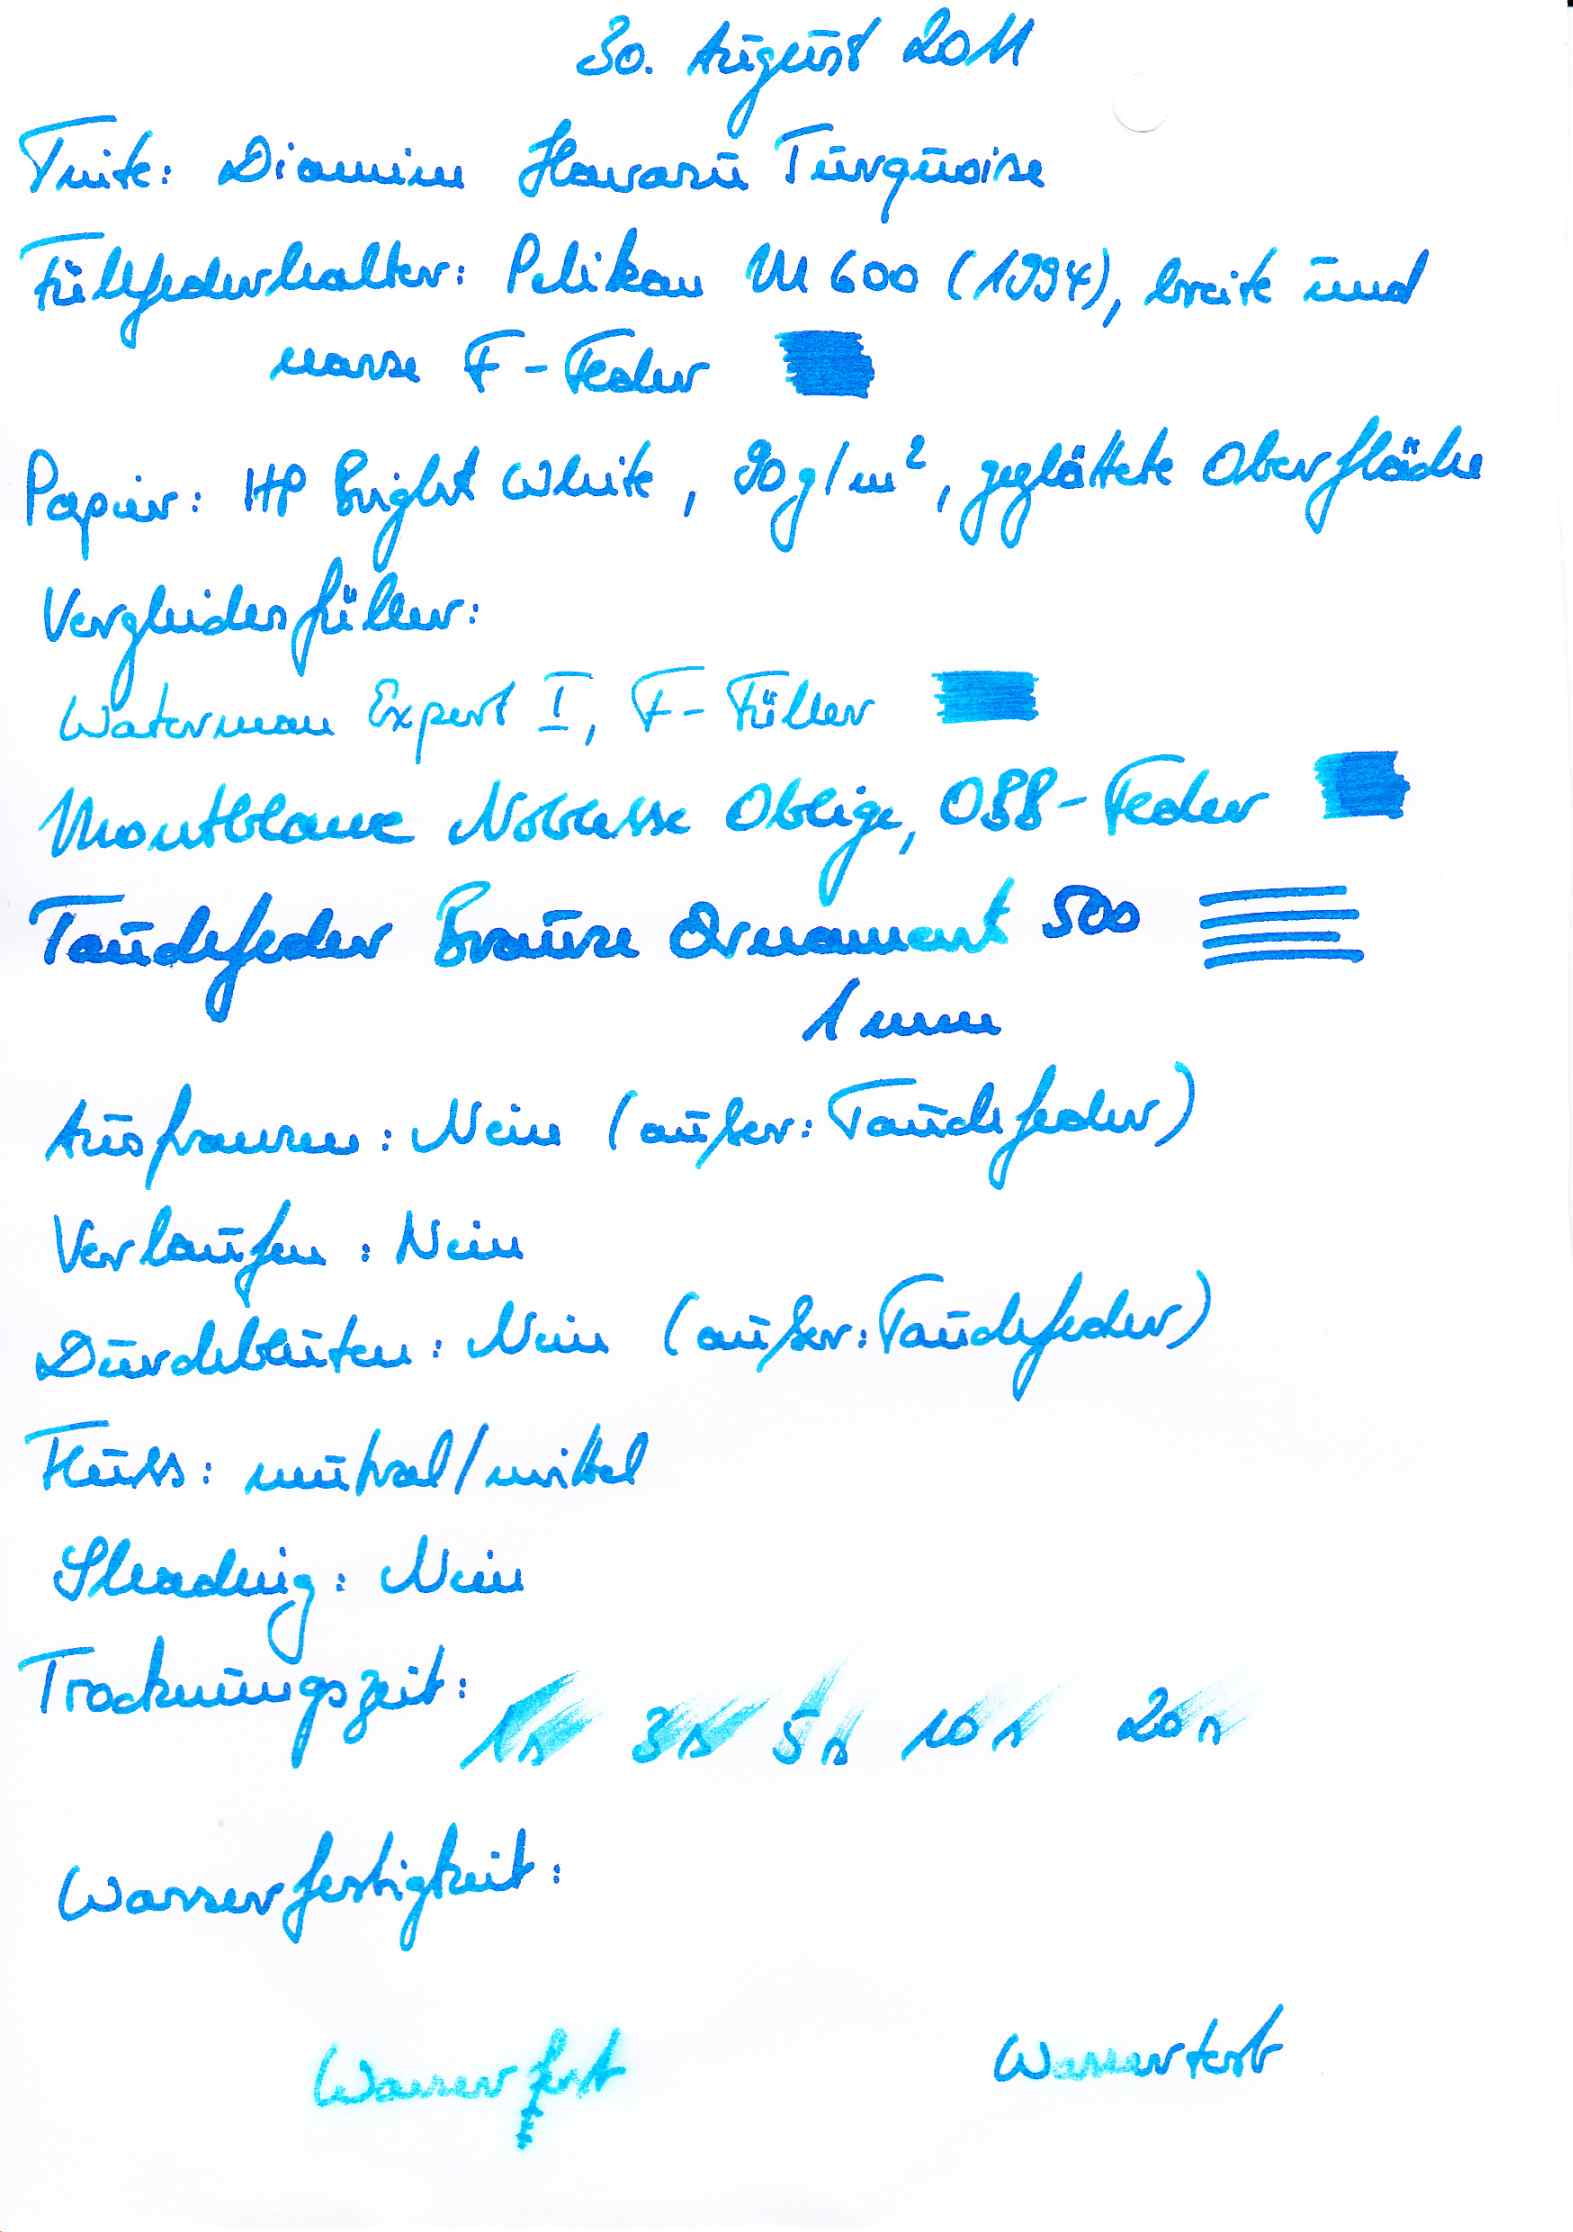 30. August 2011
Tinte: Diamine Havasu Turquoise
Füllfederhalter: Pelikan M 600 (1994), breite und
nasse F-Feder
Papier: HP Bright White, 90g/m², geglättete Oberfläche
Vergleichsfüller:
Waterman Expert I, F-Füller
Montblanc Noblesse Oblige, OBB-Feder
Tauchfeder Brause Ornament 500
1mm
Ausfransen: Nein (außer: Tauchfeder)
Verlaufen: Nein
Durchbluten: Nein (außer: Tauchfeder)
Fluss: neutral/mittel
Sheading: Nein
Trocknungszeit: 1s 3s 5s 10s 20s
Wasserfestigkeit:
Wasserfest Wassertest